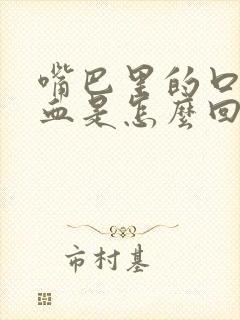 嘴巴里的口
血是怎麼回
市村基